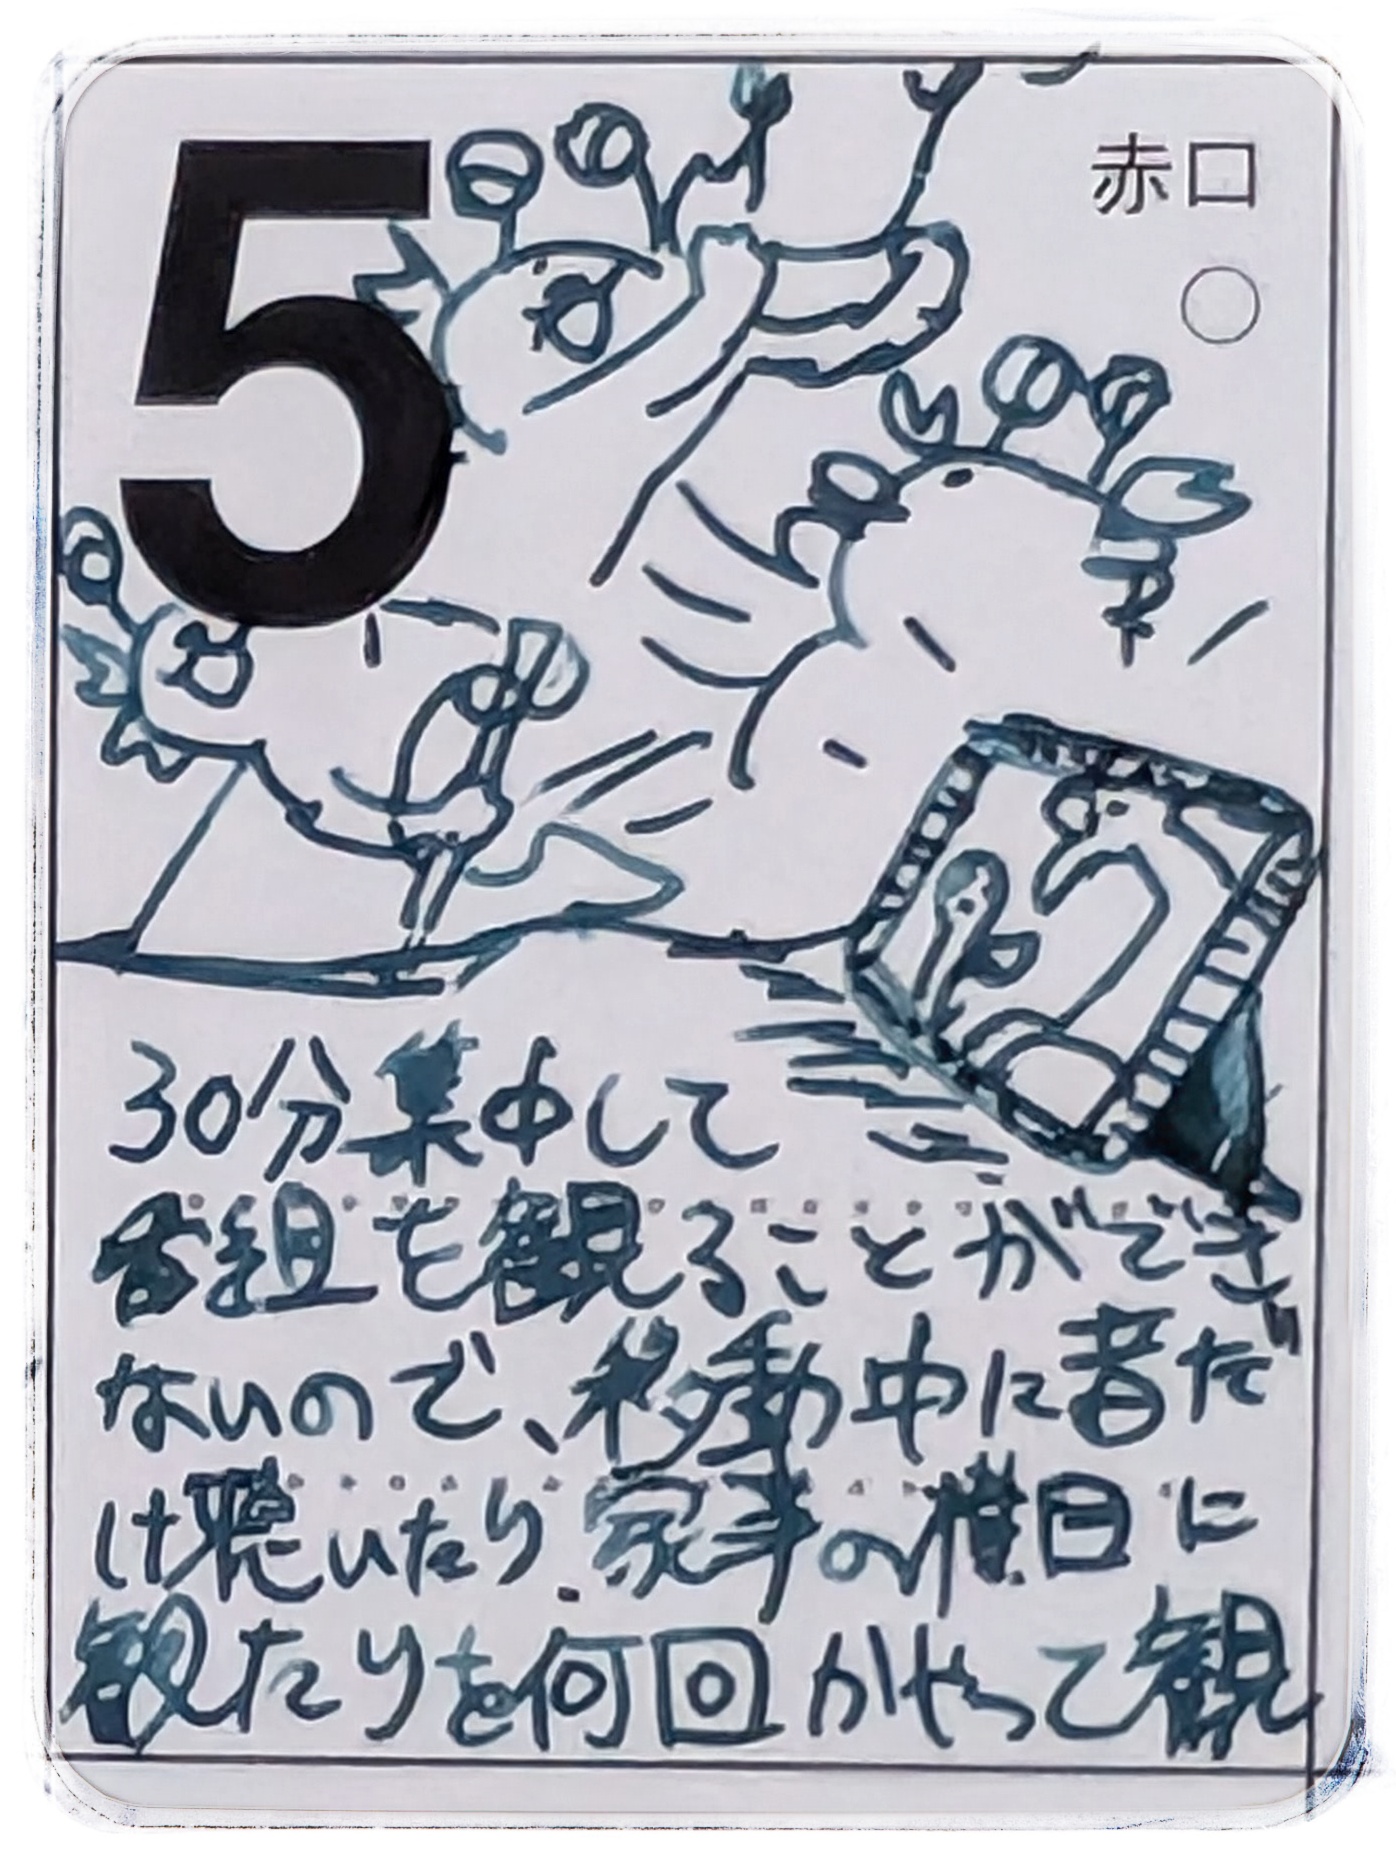 5
赤口
30分集中して
番組も観ることができ
ないので、移動中に音だ
け聴いたり、家事の横目に
観たりを何回かやって観